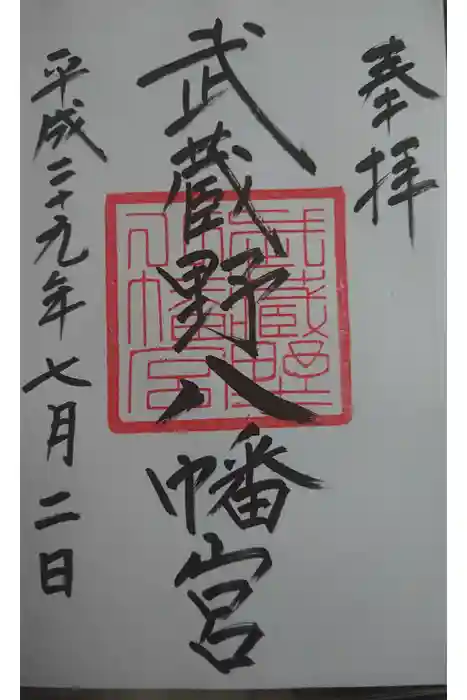 奉拝
武蔵野八幡宮
武蔵野八幡宮
平成二十九年七月二日